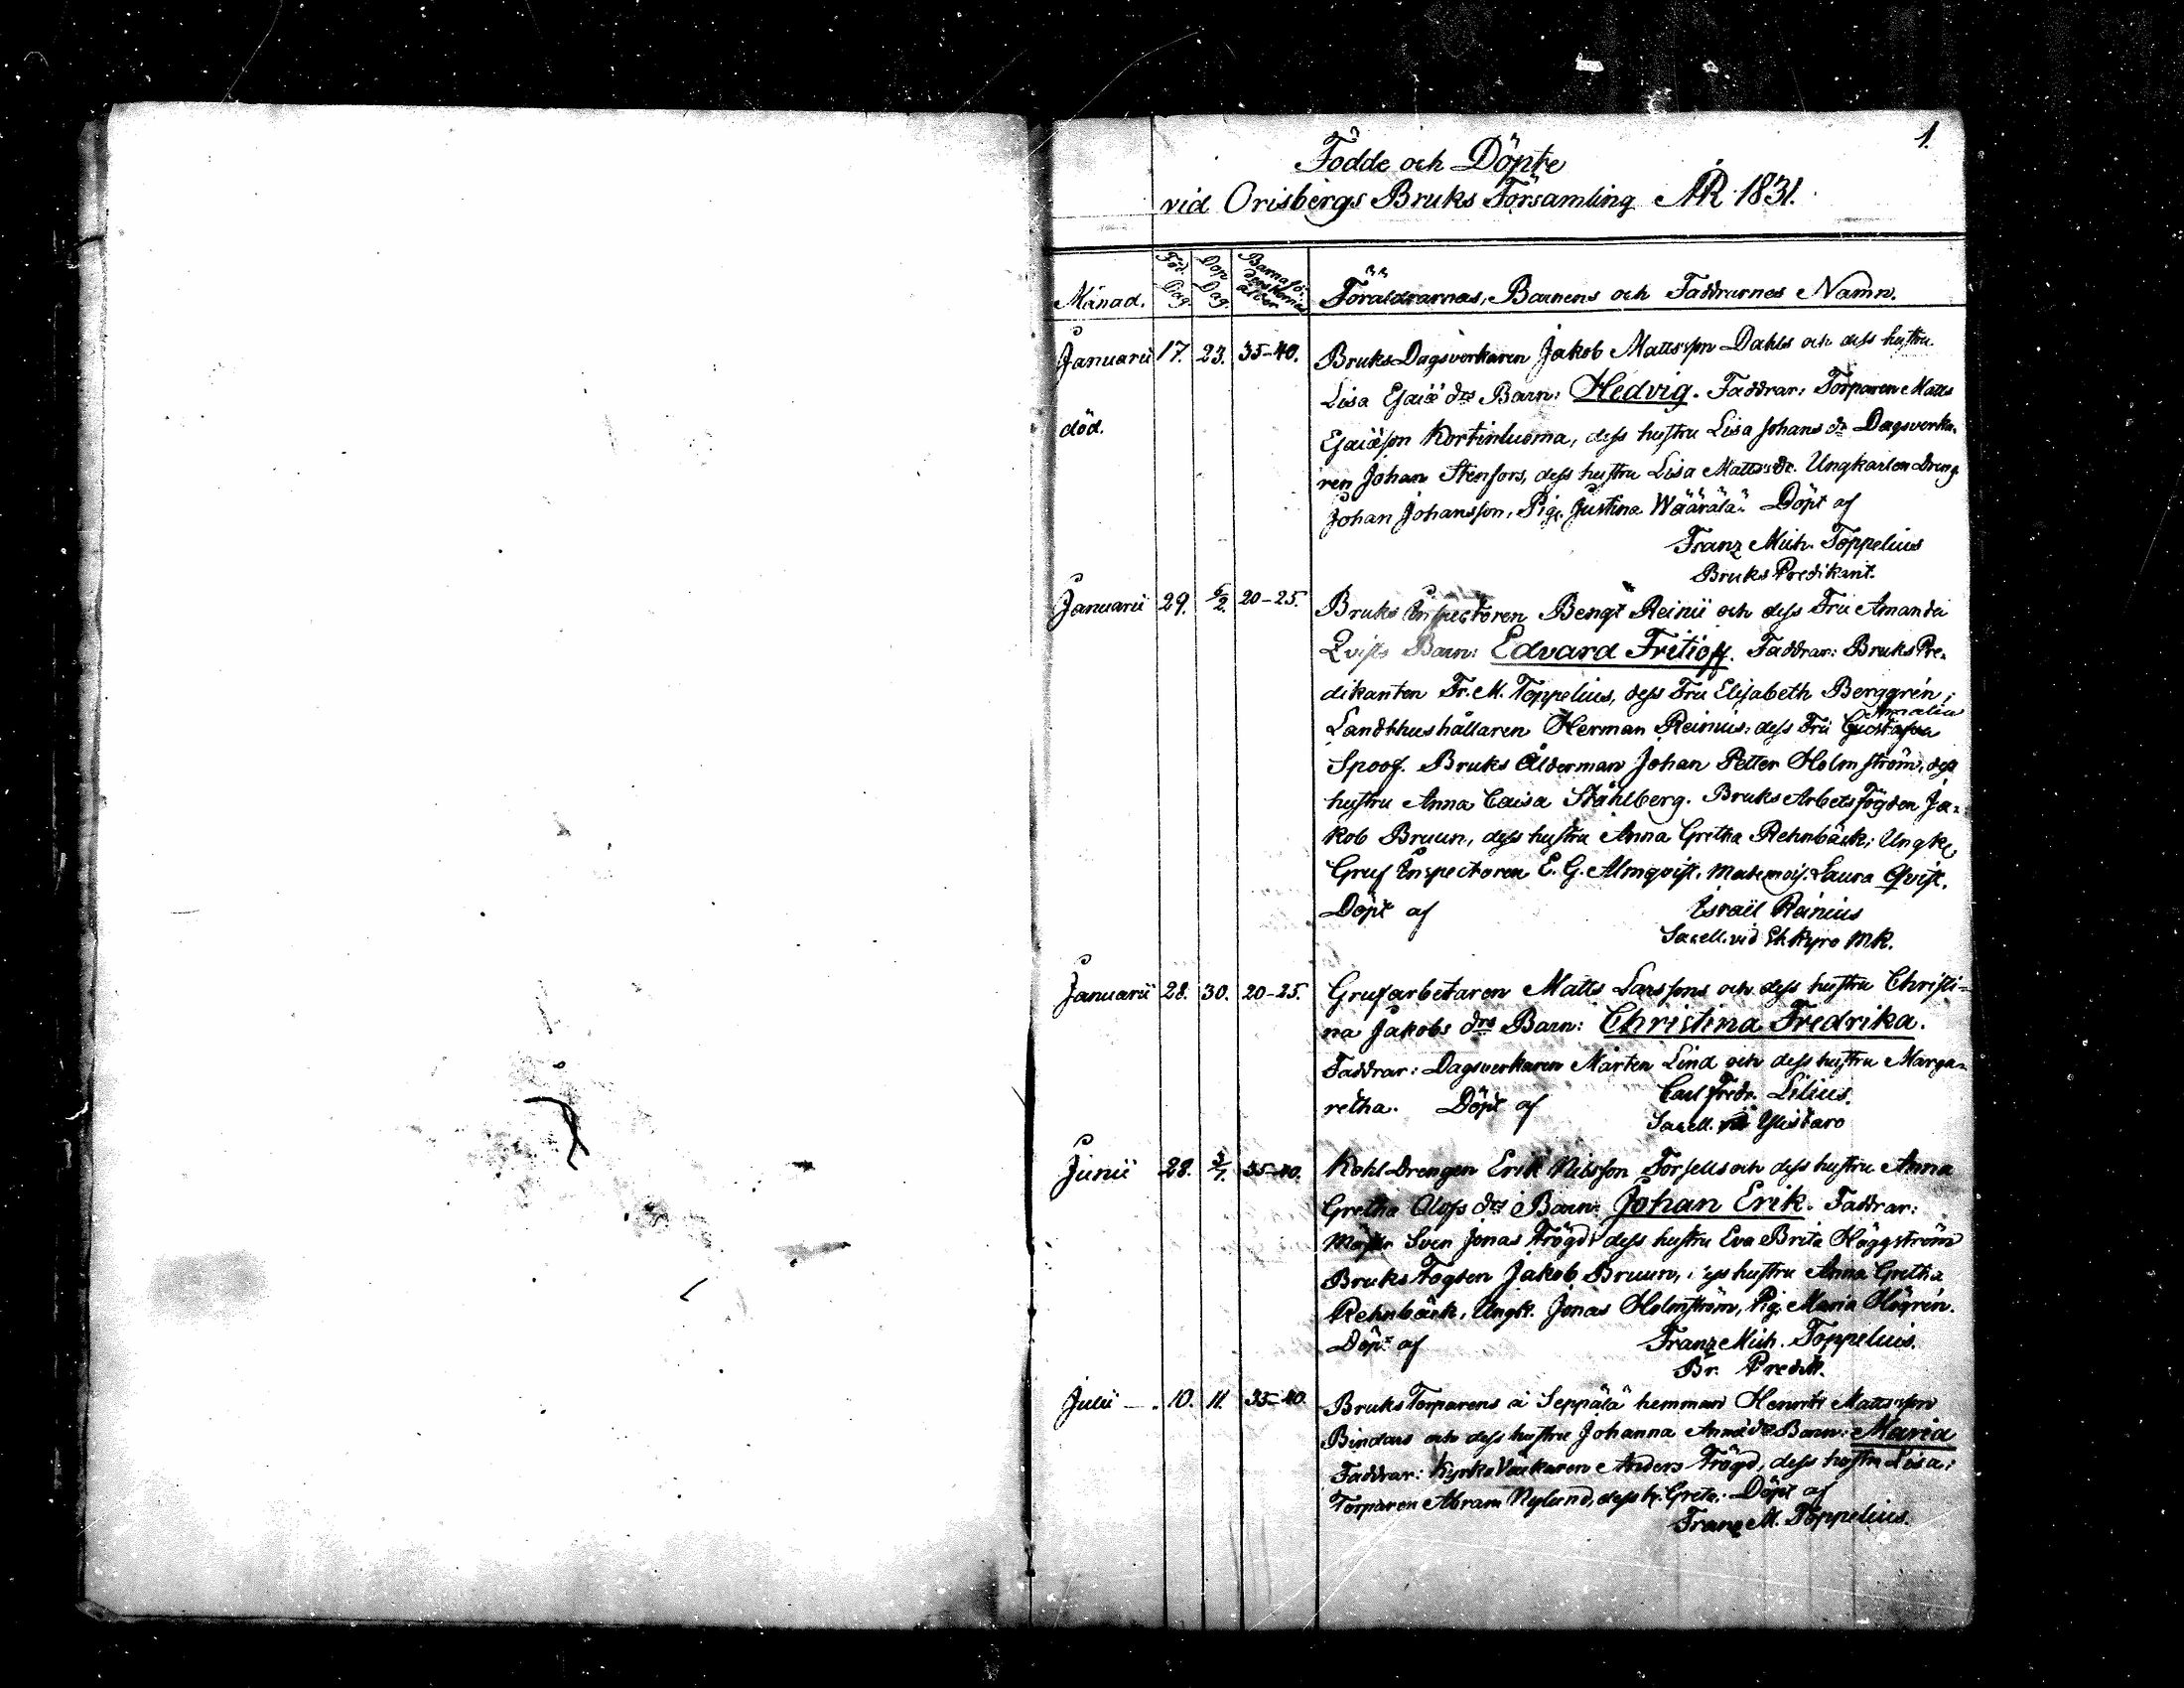 1.
Födde och Döpte
vid Orisbergs Bruks Församling ÅR 1831.
Månad. Föd. Dag Dop Dag. Barnaföderskornas ålder Föräldrarnas, Barnens och Faddrarnes Namn.
Januarii 17. 23. 35-40. Bruks Dagsverkaren Jakob Mattsson Dahls och dess hustru
Lisa Esaiæ drs Barn: Hedvig. Faddrar: Torparen Matts
död. Esaiæson Kortinluoma, dess hustru Lisa Johans dr Dagsverka-
ren Johan Stenfors, dess hustru Lisa Matts dr. Ungkarlen Dreng
Johan Johansson, Pig. Justina Wäärälä. Döpt af
Franz Mich. Toppelius
Bruks Predikant.
Januarii 29. 6/2. 20-25. Bruks Inspectoren Bengt Reinii och dess Fru Amanda
Qvists Barn: Edvard Fritioff. Faddrar: Bruks Pre-
dikanten Fr. M. Toppelius, dess Fru Elisabeth Berggrén;
Amalia
Landthushållaren Herman Reinius, dess Fru Gustafva
Spoof. Bruks Ålderman Johan Petter Holmström, dess
hustru Anna Caisa Ståhlberg. Bruks Arbets fogden Ja-
kob Bruun, dess hustru Anna Gretha Rehnbäck; Ungk.
Gruf Inspectoren E. G. Almqvist, Mademois. Laura Qvist.
Döpt af Israël Reinius
Sacell. vid Kyro MK.
Januarii 28. 30. 20-25. Grufarbetaren Matts Larssons och dess hustru Christi-
na Jakobs drs Barn: Christina Fredrika.
Faddrar: Dagsverkaren Mårten Lind och dess hustru Marga-
retha. Döpt af Carl Fredr. Lilius.
Sacell. Ylistaro
Junii 28. 3/7. 35-40. Kohl-Drengen Erik Nilsson Forsells och dess hustru Anna
Gretha Olofs drs Barn: Johan Erik. Faddrar:
Mäster Sven Jonas Frögd, dess hustru Eva Brita Häggström
Bruks Fogden Jakob Bruun, dess hustru Anna Gretha
Rehnbäck, Ungk. Jonas Holmström, Pig. Maria Högrén.
Döpt af Franz Mich. Toppelius.
Br. Predik.
Julii - . 10. 11. 35-40. Bruks Torparens å Seppälä hemman Henrik Mattsson
Bindars och dess hustru Johanna Barn: Maria
Faddrar: Kyrko Väktaren Anders Frögd, dess hustru Lisa;
Torparen Abram Nylund, dess h. Greta. Döpt af
Franz M. Toppelius.